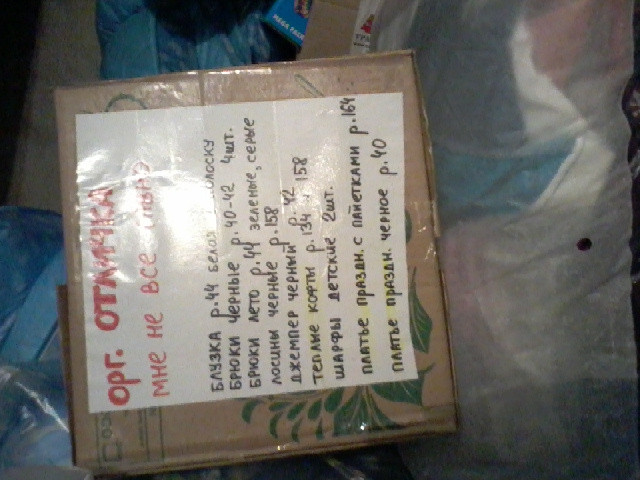 ОРГ. ОТЛИЧКА
МНЕ НЕ ВСЕ
БЛУЗКА р.44 белая полоску
БРЮКИ ЧЕРНЫЕ р.40-42 4шт.
БРЮКИ ЛЕТО р.44 ЗЕЛЕНЫЕ, СЕРЫЕ
ЛОСИНЫ ЧЕРНЫЕ р.158
ДЖЕМПЕР ЧЕРНЫЙ р.42
ТЕПЛЫЕ КОФТЫ р.134 и 158
ШАРФЫ ДЕТСКИЕ 2шт.
ПЛАТЬЕ ПРАЗДН. С ПАЙЕТКАМИ р.164
ПЛАТЬЕ ПРАЗДН. ЧЕРНОЕ р.40